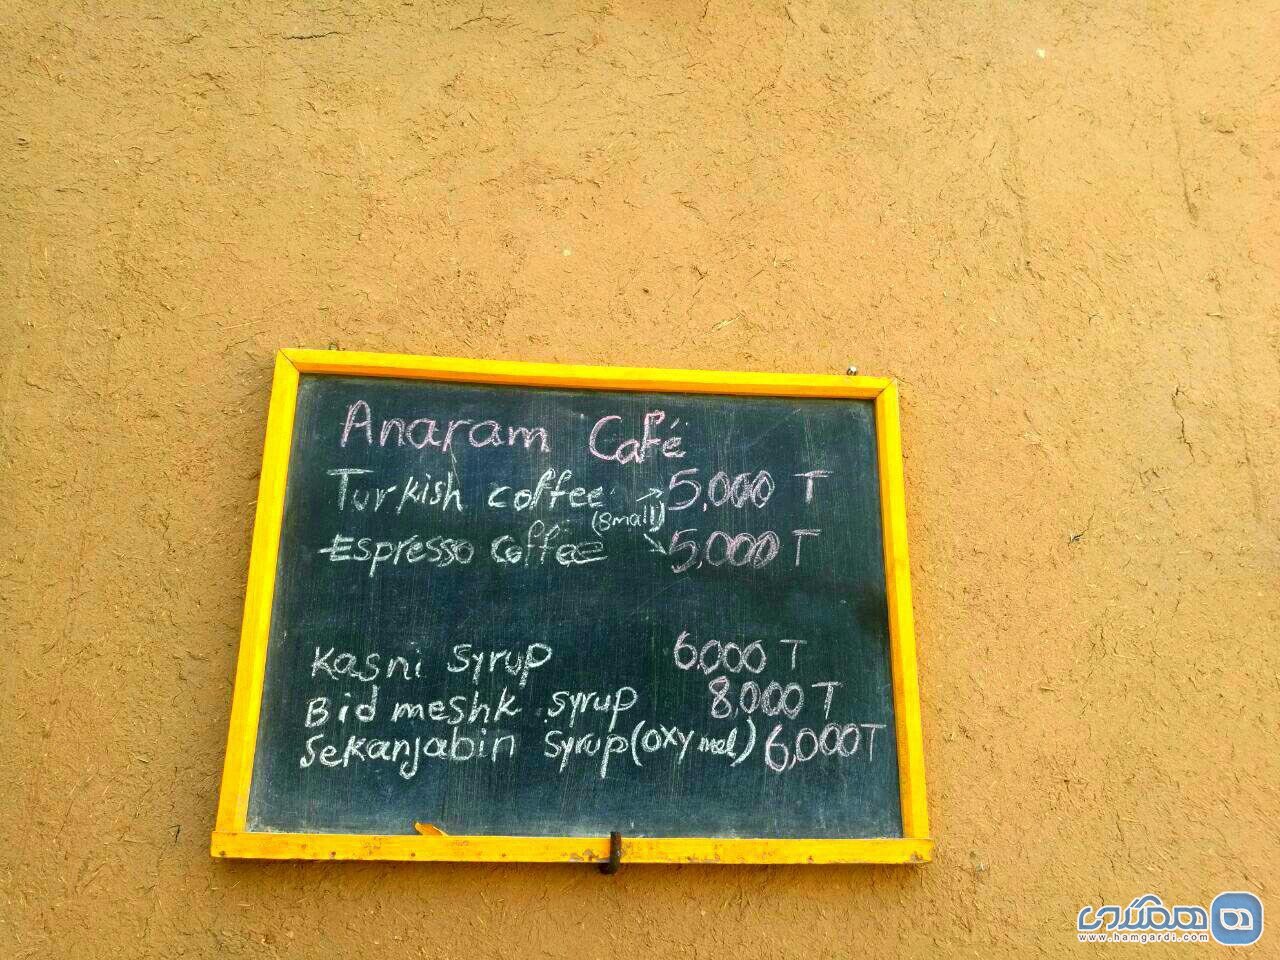 Anaram Café
Turkish coffee → 5,000 T
(small)
Espresso coffee → 5,000 T
Kasni syrup 6000 T
Bidmeshk syrup 8,000 T
Sekanjabin syrup (oxymel) 6,000 T
همگردی
www.hamgardi.com